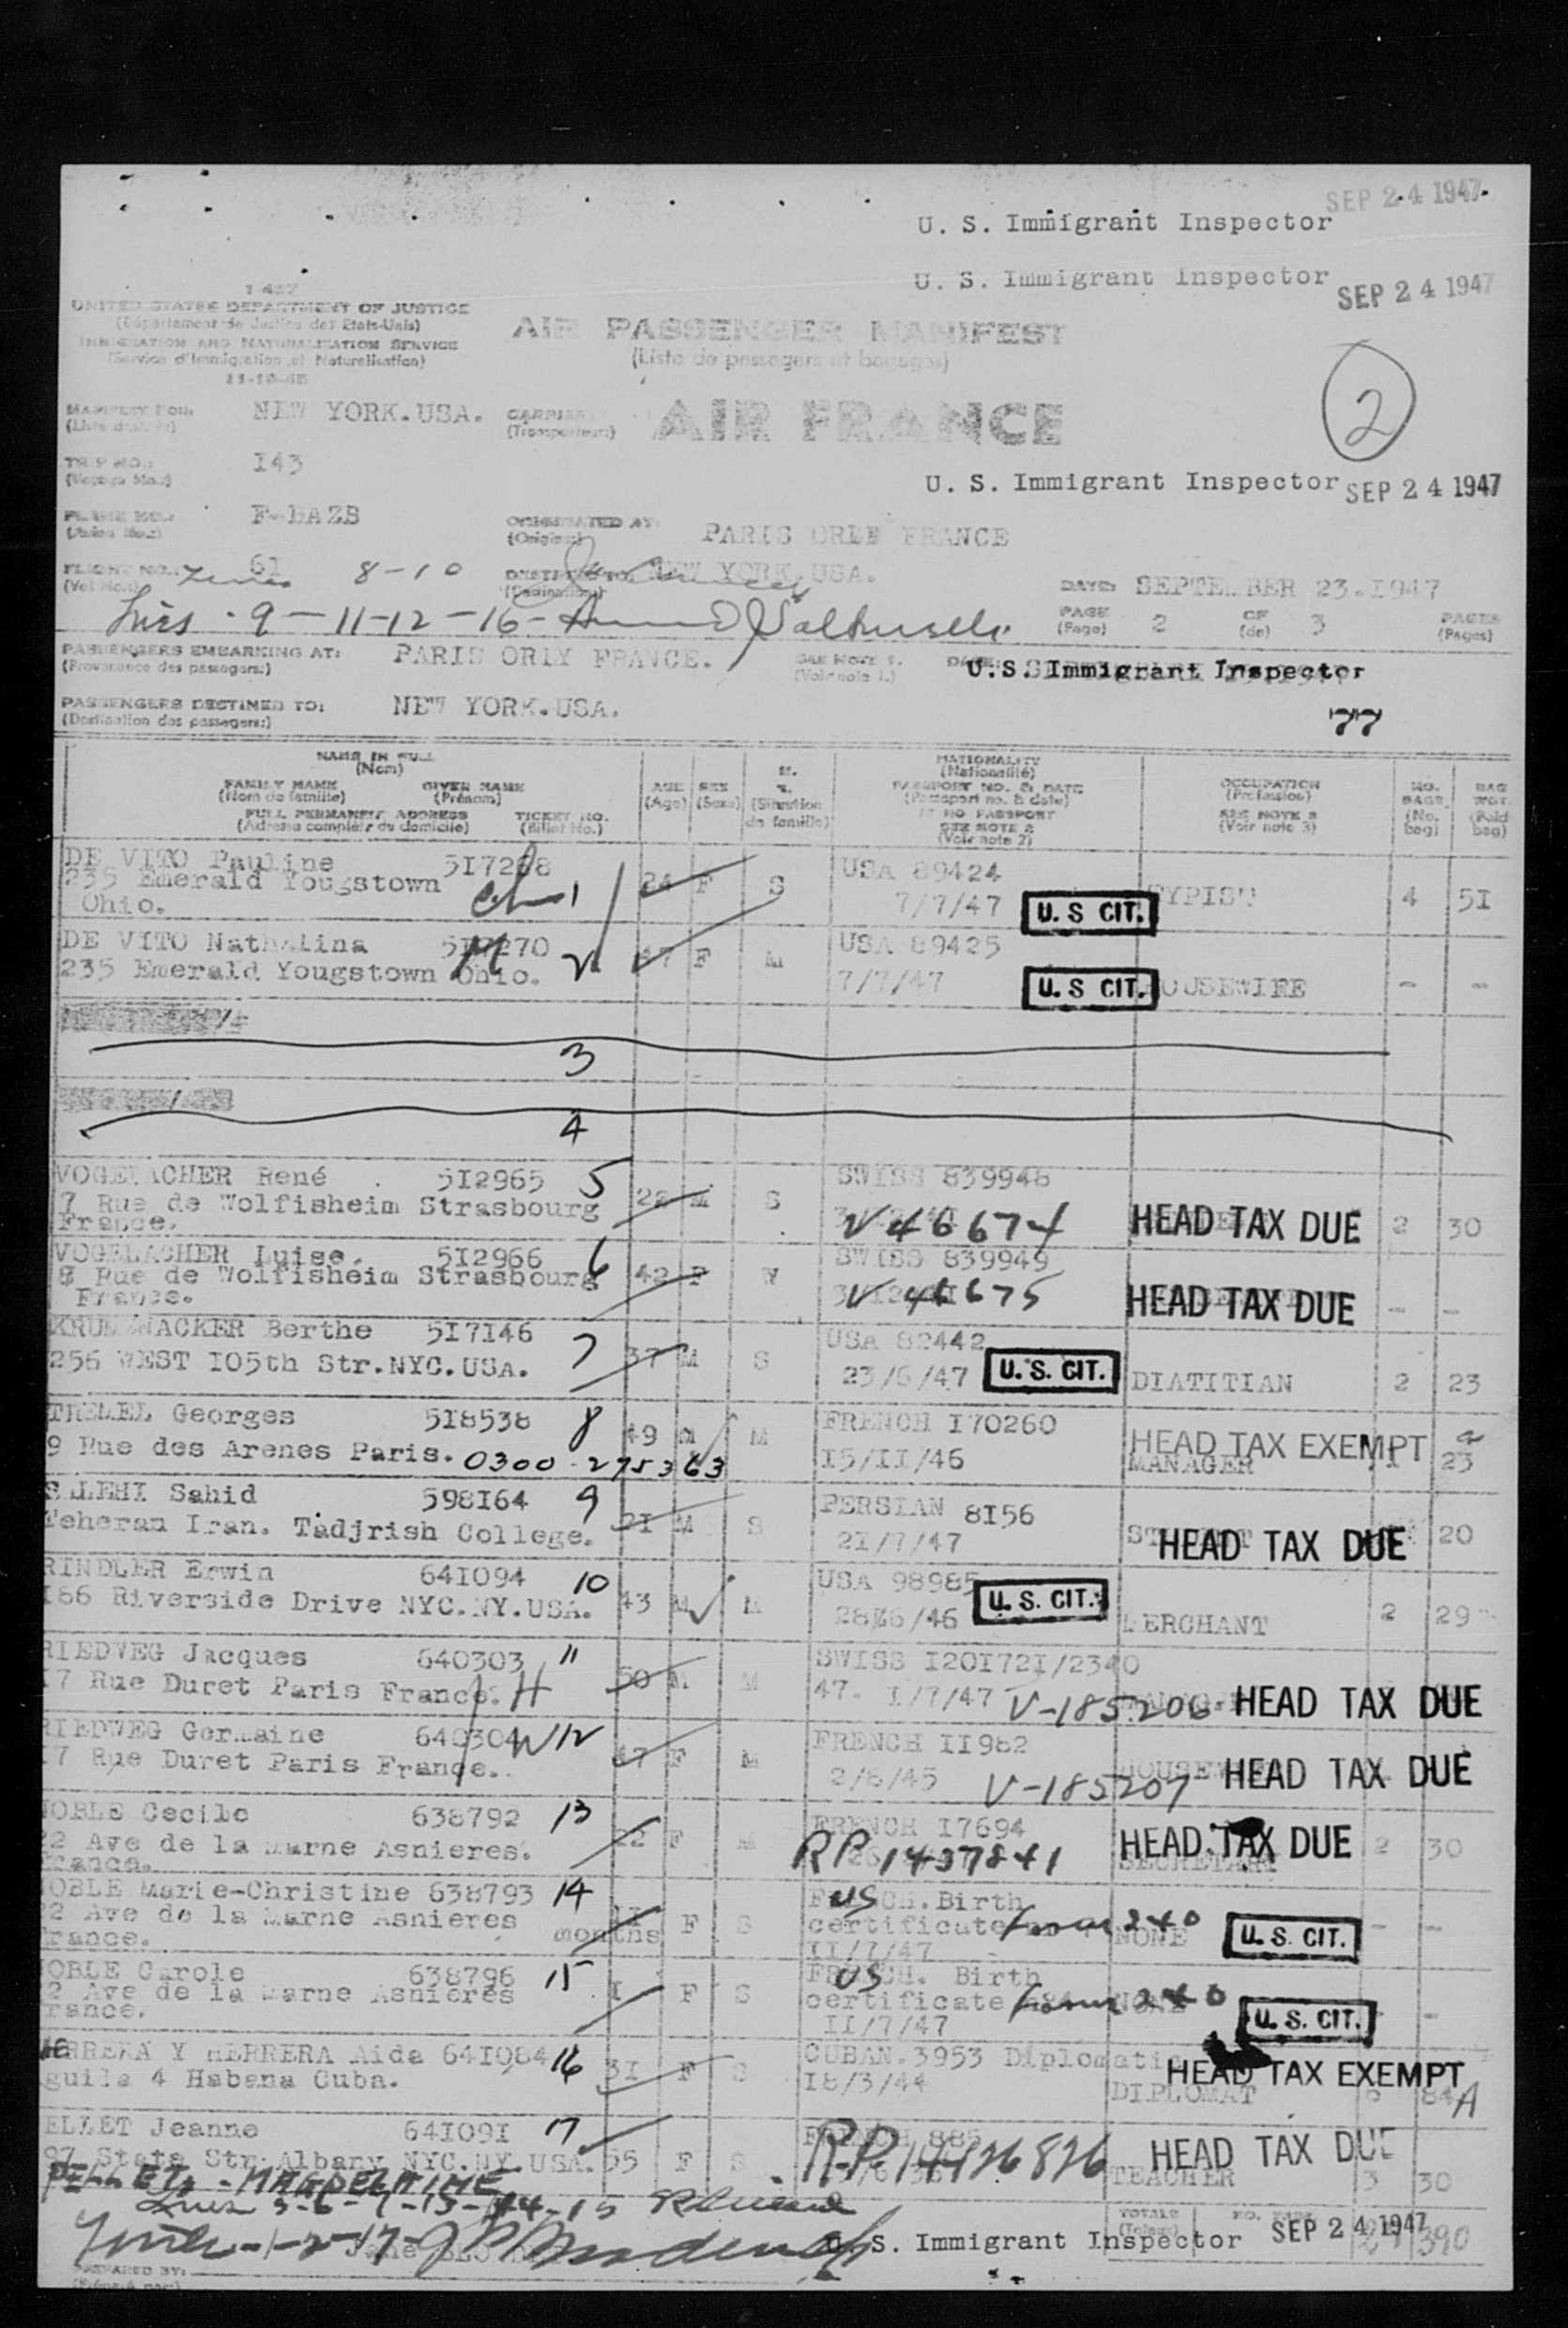 SEP 24 1947
U. S. Immigrant Inspector
U. S. Immigrant Inspector SEP 24 1947
UNITED STATES DEPARTMENT OF JUSTICE
(Département de Justice des Etats-Unis)
IMMIGRATION AND NATURALISATION SERVICE
(Service d'Immigration et Naturalisation)
AIR PASSENGER MANIFEST
(Liste de passagers et bagages)
2
MANIFEST FOR: NEW YORK.USA. CARRIER AIR FRANCE
(Transporteur)
TRIP NO.: I43
U. S. Immigrant Inspector SEP 24 1947
PLANE NO.: F-BAZB ORIGINATED AT: PARIS ORLY FRANCE
(Origine)
FLIGHT NO.: 61 8-10 DESTINED TO: NEW YORK.USA.
(Vol No.) DATE: SEPTEMBER 23.I947
9-11-12-16-
PAGE 2 OF 3 PAGES
(Page) (de) (Pages)
PASSENGERS EMBARKING AT: PARIS ORLY FRANCE. SEE NOTE 1. DATE: U.S. Immigrant Inspector
(Provenance des passagers:) (Voir note 1.)
PASSENGERS DESTINED TO: NEW YORK.USA. 77
(Destination des passagers:)
NAME IN FULL
(Nom)
FAMILY NAME GIVEN NAME
(Nom de famille) (Prénom)
FULL PERMANENT ADDRESS TICKET NO.
(Adresse complète du domicile) (Billet No.)
AGE SEX
(Age) (Sexe) (Situation de famille)
NATIONALITY
(Nationalité)
PASSPORT NO. & DATE
(Passport no. & date)
IF NO PASSPORT
SEE NOTE 2
(Voir note 2)
OCCUPATION
(Profession)
SEE NOTE 3
(Voir note 3)
NO. BAGS
(No. bag)
BAG WGT.
(Poid bag)
DE VITO Pauline 5I7268 24 F S USA 89424
235 Emerald Yougstown 1 7/7/47 U. S CIT. TYPIST 4 5I
Ohio.
DE VITO Nathalina 5I7270 47 F M USA 89425
235 Emerald Yougstown Ohio. 2 7/7/47 U. S CIT. HOUSEWIFE - -
3
4
VOGELACHER René 5I2965 5 22 M S SWISS 839948
7 Rue de Wolfisheim Strasbourg V 46674 HEAD TAX DUE 2 30
France.
VOGELACHER Luise. 5I2966 6 42 F W SWISS 839949
8 Rue de Wolfisheim Strasbourg V 46675 HEAD TAX DUE - -
France.
KRUMWACKER Berthe 5I7I46 7 37 M S USA 82442
256 WEST I05th Str.NYC.USA. 23/6/47 U. S. CIT. DIATITIAN 2 23
TREMEL Georges 5I8538 8 49 M M FRENCH I70260
9 Rue des Arenes Paris. 0300-275363 I5/II/46 HEAD TAX EXEMPT
MANAGER 23
SALEHI Sahid 598I64 9 2I M S PERSIAN 8I56
Teheran Iran. Tadjrish College. 2I/7/47 HEAD TAX DUE 20
RINDLER Erwin 64I094 10 43 M M USA 98985
I86 Riverside Drive NYC.NY.USA. 28/6/46 U. S. CIT. MERCHANT 2 29
RIEDWEG Jacques 640303 11 50 M M SWISS I20I72I/2340
I7 Rue Duret Paris France. H 47. I/7/47 V-185206 HEAD TAX DUE
RIEDWEG Germaine 640304 W 12 47 F M FRENCH II982
I7 Rue Duret Paris France. 2/6/45 V-185207 HOUSEWIFE HEAD TAX DUE
NOBLE Cecile 638792 13 22 F M FRENCH I7694
22 Ave de la Marne Asnieres. RP 1437841 HEAD TAX DUE 2 30
France. SECRETARY
NOBLE Marie-Christine 638793 14 II months F S US Birth
22 Ave de la Marne Asnieres certificate Form 240 NONE U. S. CIT. - -
France. II/7/47
NOBLE Carole 638796 15 I F S US Birth
22 Ave de la Marne Asnieres certificate Form 240 NONE U. S. CIT. -
France. II/7/47
HERRERA Y HERRERA Aida 64I084 16 3I F S CUBAN.3953 Diplomatic HEAD TAX EXEMPT
Aguila 4 Habana Cuba. I8/3/44 DIPLOMAT 6 84 A
PELLET Jeanne 64I09I 17 55 F S FRENCH 885 HEAD TAX DUE
97 State Str Albany NYC.NY.USA. R.P. 1426826 TEACHER 3 30
PELLET - MAGDELAINE
5-6-7-13-14-15
1-2-17
TOTALS
U. S. Immigrant Inspector SEP 24 1947 390
PREPARED BY: